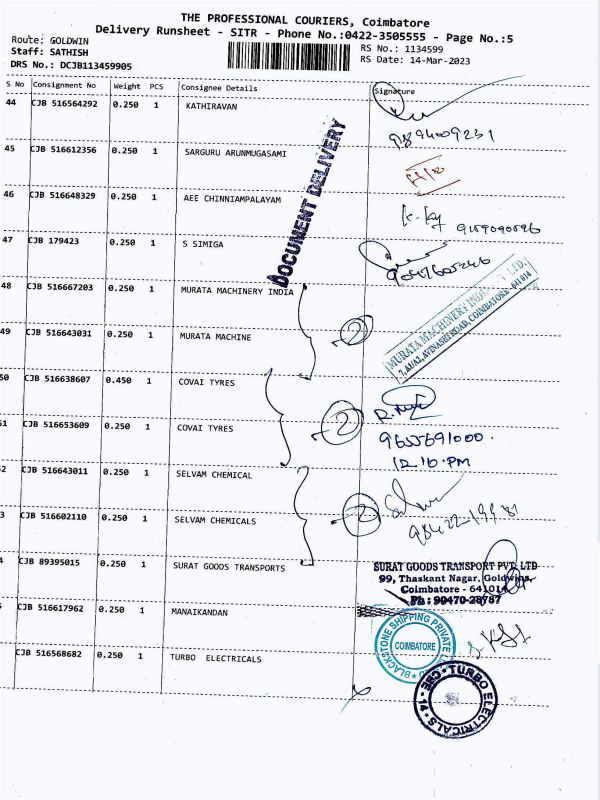 THE PROFESSIONAL COURIERS, Coimbatore
Delivery Runsheet - SITR - Phone No.:0422-3505555 - Page No.:5
Route: GOLDWIN
Staff: SATHISH
DRS No.: DCJB113459905
RS No.: 1134599
RS Date: 14-Mar-2023
S No Consignment No Weight PCS Consignee Details Signature
44 CJB 516564292 0.250 1 KATHIRAVAN
9894009231
45 CJB 516612356 0.250 1 SARGURU ARUNMUGASAMI
46 CJB 516648329 0.250 1 AEE CHINNIAMPALAYAM
9159090596
47 CJB 179423 0.250 1 S SIMIGA
DOCUMENT DELIVERY
48 CJB 516667203 0.250 1 MURATA MACHINERY INDIA
49 CJB 516643031 0.250 1 MURATA MACHINE
2
MURATA MACHINERY INDIA LTD,
AVINASHI ROAD, COIMBATORE - 641 014
50 CJB 516638607 0.450 1 COVAI TYRES
51 CJB 516653609 0.250 1 COVAI TYRES
2
9655691000.
12.10.PM
2 CJB 516643011 0.250 1 SELVAM CHEMICAL
3 CJB 516602110 0.250 1 SELVAM CHEMICALS
2
4 CJB 89395015 0.250 1 SURAT GOODS TRANSPORTS
SURAT GOODS TRANSPORT PVT. LTD
99, Thaskant Nagar, Goldwins,
Coimbatore - 641014
Ph : 90470-28787
CJB 516617962 0.250 1 MANAIKANDAN
BLACKSTONE SHIPPING PRIVATE
COIMBATORE
CJB 516568682 0.250 1 TURBO ELECTRICALS
TURBO ELECTRICALS - 14 - CBE